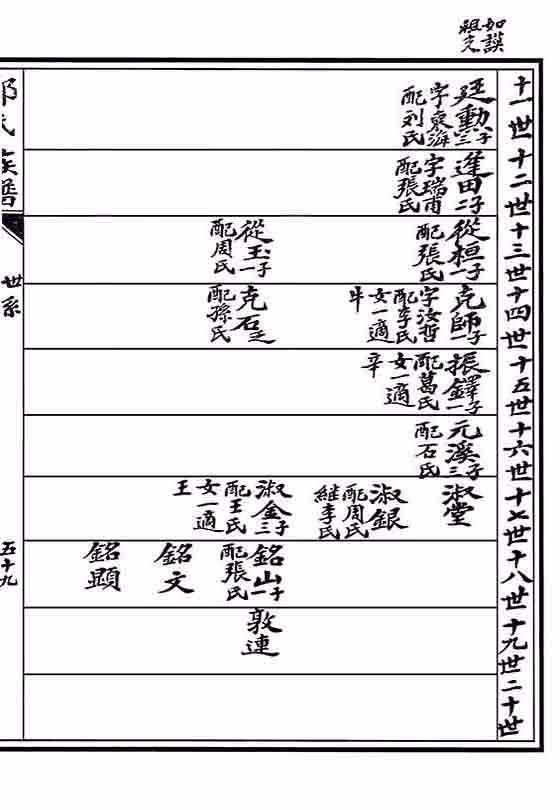 如謨
祖支
十一世
廷勳三子
字東海
配刘氏
十二世
逢田二子
字瑞甫
配張氏
十三世
從桓一子
配張氏
從玉一子
配周氏
十四世
克師一子
字汝哲
配李氏
女一適
牛
克石乏
配孫氏
十五世
振鐸一子
配葛氏
女一適
辛
十六世
元溪三子
配石氏
十七世
淑堂
淑銀
配周氏
継李氏
淑金三子
配王氏
女一適
王
十八世
銘山一子
配張氏
銘文
銘顯
十九世
敦連
二十世
氏族譜
世系
五十九